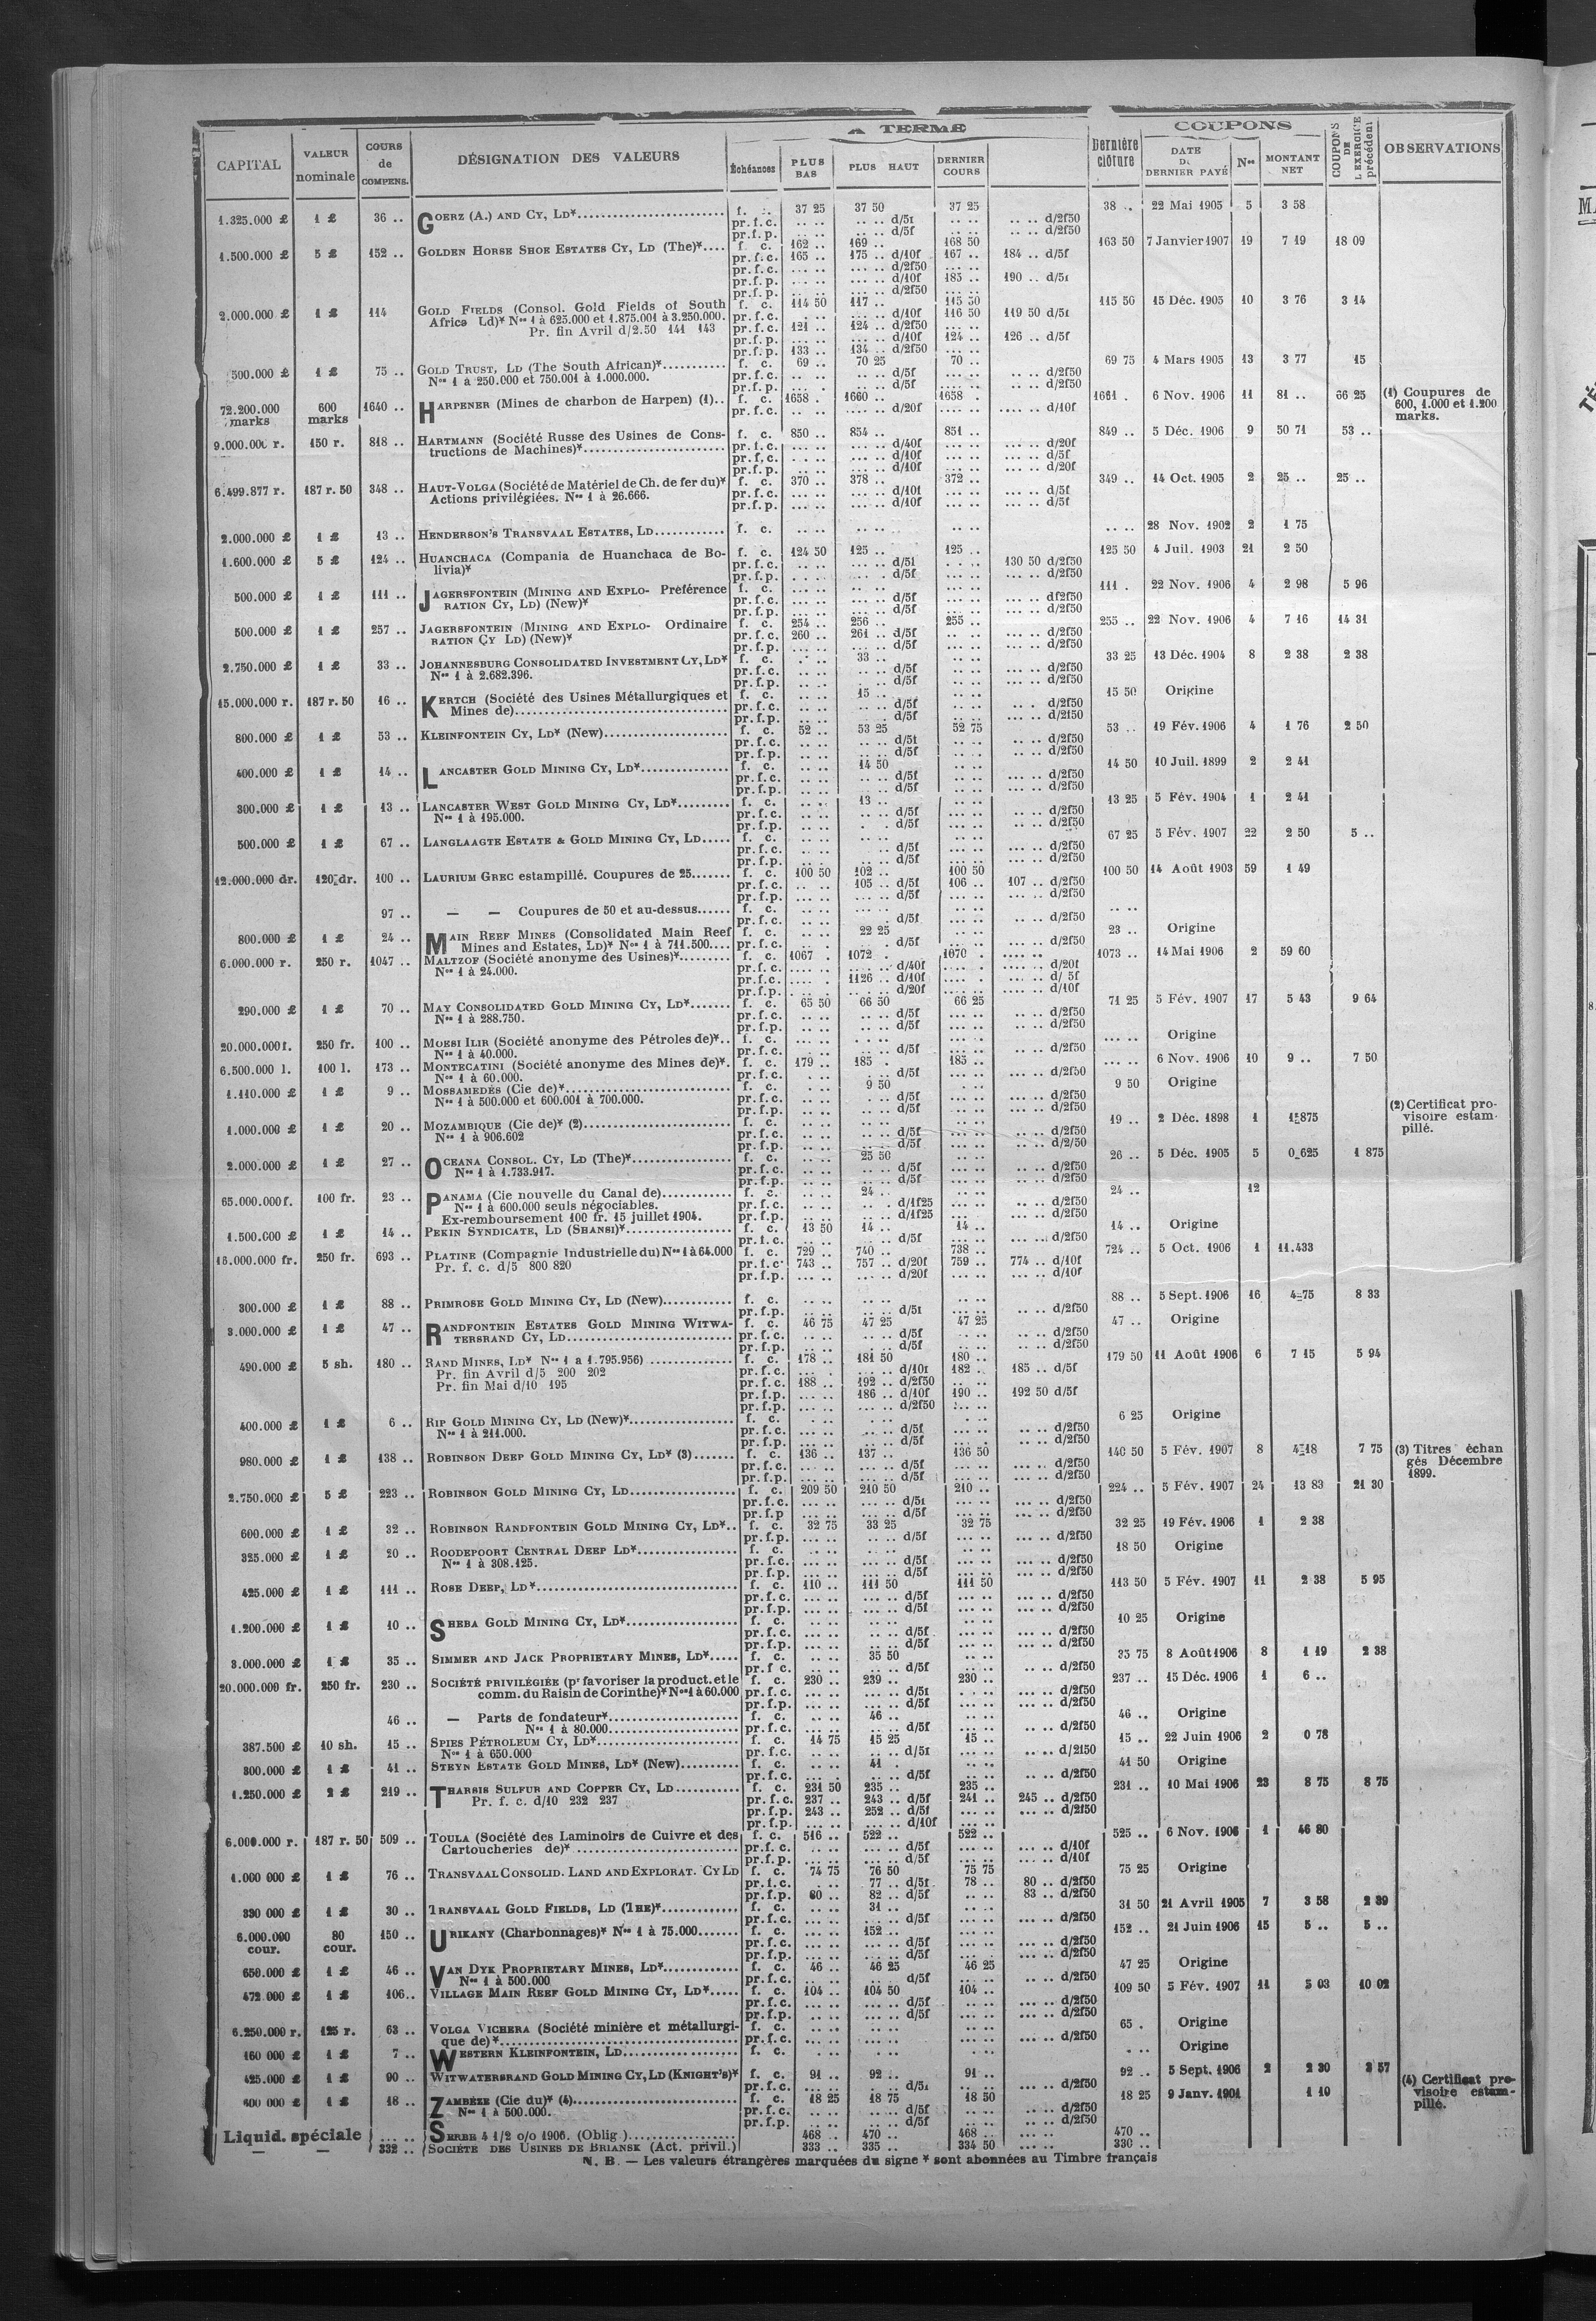 A TERME
COUPONS
CAPITAL
VALEUR nominale
COURS de COMPENS.
DÉSIGNATION DES VALEURS
Échéances
PLUS BAS
PLUS HAUT
DERNIER COURS
Dernière clôture
DATE DU DERNIER PAYÉ
Nos
MONTANT NET
COUPONS DE L'EXERCICE précédent
OBSERVATIONS
1.325.000 £ 1 £ 36 .. GOERZ (A.) AND CY, LD* f. 37 25 37 50 37 25 38 .. 22 Mai 1905 5 3 58
pr.f.c. .. .. .. .. d/5f .. .. .. .. d/2f50
pr.f.p. .. .. .. .. d/5f .. .. .. .. d/2f50
1.500.000 £ 5 £ 152 .. GOLDEN HORSE SHOE ESTATES CY, LD (The)* f. c. 162 .. 169 .. 168 50 163 50 7 Janvier 1907 19 7 19 18 09
pr.f.c. 165 .. 175 .. d/10f 167 .. 184 .. d/5f
pr.f.c. ... .. ... .. d/2f50 ... ..
pr.f.p. ... .. ... .. d/10f 185 .. 190 .. d/5f
pr.f.p. ... .. ... .. d/2f50
2.000.000 £ 1 £ 114 GOLD FIELDS (Consol. Gold Fields of South f. c. 114 50 117 .. 115 50 115 50 15 Déc. 1905 10 3 76 3 14
Africa Ld)* Nos 1 à 625.000 et 1.875.001 à 3.250.000. pr.f.c. ... .. d/10f 116 50 119 50 d/5f
Pr. fin Avril d/2.50 141 143 pr.f.c. 121 .. 124 .. d/2f50
pr.f.p. ... .. d/10f 124 .. 126 .. d/5f
pr.f.p. 133 .. 134 .. d/2f50
500.000 £ 1 £ 75 .. GOLD TRUST, LD (The South African)* f. c. 69 .. 70 25 70 .. 69 75 4 Mars 1905 13 3 77 15
Nos 1 à 250.000 et 750.001 à 1.000.000. pr.f.c. .. .. d/5f .. .. d/2f50
pr.f.p. .. .. d/5f .. .. d/2f50
72.200.000 marks 600 marks 1640 .. HARPENER (Mines de charbon de Harpen) (1).. f. c. 1658 . 1660 .. 1658 . 1661 . 6 Nov. 1906 11 81 .. 66 25 (1) Coupures de 600, 1.000 et 1.200 marks.
pr.f.c. .... .. d/20f .... .. d/10f
9.000.000 r. 150 r. 818 .. HARTMANN (Société Russe des Usines de Cons- f. c. 850 .. 854 .. 851 .. 849 .. 5 Déc. 1906 9 50 71 53 ..
tructions de Machines)* pr.f.c. ... .. d/40f ... .. d/20f
pr.f.c. ... .. d/10f ... .. d/5f
pr.f.p. ... .. d/10f ... .. d/20f
6.499.877 r. 187 r. 50 348 .. HAUT-VOLGA (Société de Matériel de Ch. de fer du)* f. c. 370 .. 378 .. 372 .. 349 .. 14 Oct. 1905 2 25 .. 25 ..
Actions privilégiées. Nos 1 à 26.666. pr.f.c. ... .. d/10f ... .. d/5f
pr.f.p. ... .. d/10f ... .. d/5f
2.000.000 £ 1 £ 13 .. HENDERSON'S TRANSVAAL ESTATES, LD f. c. .. .. .. .. .. .. 28 Nov. 1902 2 1 75
1.600.000 £ 5 £ 124 .. HUANCHACA (Compania de Huanchaca de Bo- f. c. 124 50 125 .. 125 .. 125 50 4 Juil. 1903 21 2 50
livia)* pr.f.c. ... .. d/5f 130 50 d/2f50
pr.f.p. ... .. d/5f ... .. d/2f50
500.000 £ 1 £ 111 .. JAGERSFONTEIN (MINING AND EXPLO- Préférence f. c. 111 . 22 Nov. 1906 4 2 98 5 96
RATION CY, LD) (New)* pr.f.c. ... .. d/5f df2f50
pr.f.p. ... .. d/5f ... .. d/2f50
500.000 £ 1 £ 257 .. JAGERSFONTEIN (MINING AND EXPLO- Ordinaire f. c. 254 .. 256 .. 255 .. 255 .. 22 Nov. 1906 4 7 16 14 31
RATION CY LD) (New)* pr.f.c. 260 .. 261 .. d/5f ... .. d/2f50
pr.f.p. ... .. d/5f ... .. d/2f50
2.750.000 £ 1 £ 33 .. JOHANNESBURG CONSOLIDATED INVESTMENT CY, LD* f. c. 33 .. 33 25 13 Déc. 1904 8 2 38 2 38
Nos 1 à 2.682.396. pr.f.c. .. .. d/5f .. .. d/2f50
pr.f.p. .. .. d/5f .. .. d/2f50
15.000.000 r. 187 r. 50 16 .. KERTCH (Société des Usines Métallurgiques et f. c. 15 .. 15 50 Origine
Mines de) pr.f.c. .. .. d/5f .. . d/2f50
pr.f.p. .. .. d/5f ... . d/2f50
800.000 £ 1 £ 53 .. KLEINFONTEIN CY, LD* (New) f. c. 52 .. 53 25 52 75 53 .. 19 Fév. 1906 4 1 76 2 50
pr.f.c. .. .. d/5f .. .. d/2f50
pr.f.p. .. .. d/5f .. .. d/2f50
400.000 £ 1 £ 14 .. LANCASTER GOLD MINING CY, LD* f. c. 14 50 14 50 10 Juil. 1899 2 2 41
pr.f.c. .. .. d/5f ... .. d/2f50
pr.f.p. .. .. d/5f .. .. d/2f50
300.000 £ 1 £ 13 .. LANCASTER WEST GOLD MINING CY, LD* f. c. 13 .. 13 25 5 Fév. 1904 1 2 41
Nos 1 à 195.000. pr.f.c. .. .. d/5f .. .. d/2f50
pr.f.p. . . d/5f .. .. d/2f50
500.000 £ 1 £ 67 .. LANGLAAGTE ESTATE & GOLD MINING CY, LD f. c. 67 25 5 Fév. 1907 22 2 50 5 ..
pr.f.c. .. .. d/5f ... .. d/2f50
pr.f.p. .. .. d/5f ... .. d/2f50
12.000.000 dr. 120 dr. 100 .. LAURIUM GREC estampillé. Coupures de 25 f. c. 100 50 102 .. 100 50 100 50 14 Août 1903 59 1 49
pr.f.c. .. .. 105 .. d/5f 106 .. 107 .. d/2f50
pr.f.p. ... .. d/5f ... .. d/2f50
97 .. — — Coupures de 50 et au-dessus f. c. .. .. .. ..
pr.f.c. .. .. d/5f .. .. d/2f50
800.000 £ 1 £ 24 .. MAIN REEF MINES (Consolidated Main Reef f. c. 22 25 23 .. Origine
Mines and Estates, LD)* Nos 1 à 711.500 pr.f.c. .. . d/5f ... .. d/2f50
6.000.000 r. 250 r. 1047 .. MALTZOF (Société anonyme des Usines)* f. c. 1067 . 1072 . 1670 . 1073 .. 14 Mai 1906 2 59 60
Nos 1 à 24.000. pr.f.c. .... . d/40f .... .. d/20f
pr.f.c. .... . 1126 .. d/10f .... .. d/ 5f
pr.f.p. .... . d/20f .... .. d/10f
290.000 £ 1 £ 70 .. MAY CONSOLIDATED GOLD MINING CY, LD* f. c. 65 50 66 50 66 25 71 25 5 Fév. 1907 17 5 43 9 64
Nos 1 à 288.750. pr.f.c. .. .. d/5f .. .. d/2f50
pr.f.p. .. .. d/5f .. .. d/2f50
20.000.000 f. 250 fr. 100 .. MOESI ILIR (Société anonyme des Pétroles de)* f. c. ... .. Origine
Nos 1 à 40.000. pr.f.c. .. .. d/5f .. .. d/2f50
6.500.000 l. 100 l. 173 .. MONTECATINI (Société anonyme des Mines de)* f. c. 179 .. 185 . 185 .. ... .. 6 Nov. 1906 10 9 .. 7 50
Nos 1 à 60.000. pr.f.c. .. .. d/5f ... .. d/2f50
1.110.000 £ 1 £ 9 .. MOSSAMEDÈS (Cie de)* f. c. 9 50 9 50 Origine
Nos 1 à 500.000 et 600.001 à 700.000. pr.f.c. .. .. d/5f ... .. d/2f50
pr.f.p. .. .. d/5f ... .. d/2f50
1.000.000 £ 1 £ 20 .. MOZAMBIQUE (Cie de)* (2) f. c. 19 .. 2 Déc. 1898 1 1 875 (2) Certificat pro- visoire estam- pillé.
Nos 1 à 906.602 pr.f.c. .. .. d/5f .. .. d/2f50
pr.f.p. .. .. d/5f ... .. d/2/50
2.000.000 £ 1 £ 27 .. OCEANA CONSOL. CY, LD (The)* f. c. 25 50 26 .. 5 Déc. 1905 5 0 625 1 875
Nos 1 à 1.733.917. pr.f.c. .. .. d/5f .. .. d/2f50
pr.f.p. .. .. d/5f .. .. d/2f50
65.000.000 f. 100 fr. 23 .. PANAMA (Cie nouvelle du Canal de) f. c. 24 .. 24 .. 12
Nos 1 à 600.000 seuls négociables. pr.f.c. .. . d/1f25 ... .. d/2f50
Ex-remboursement 100 fr. 15 juillet 1904. pr.f.p. .. .. d/1f25 ... .. d/2f50
1.500.000 £ 1 £ 14 .. PEKIN SYNDICATE, LD (SHANSI)* f. c. 13 50 14 .. 14 .. 14 .. Origine
pr.f.c. .. .. d/5f ... .. d/2f50
16.000.000 fr. 250 fr. 693 .. PLATINE (Compagnie Industrielle du) Nos 1 à 64.000 f. c. 729 .. 740 .. 738 .. 724 .. 5 Oct. 1906 1 11.433
Pr. f. c. d/5 800 820 pr.f.c. 743 .. 757 .. d/20f 759 .. 774 .. d/10f
pr.f.p. ... .. d/20f ... .. d/10f
300.000 £ 1 £ 88 .. PRIMROSE GOLD MINING CY, LD (New) f. c. 88 .. 5 Sept. 1906 16 4 75 8 33
pr.f.p. .. .. d/5f .. .. d/2f50
3.000.000 £ 1 £ 47 .. RANDFONTEIN ESTATES GOLD MINING WITWA- f. c. 46 75 47 25 47 25 47 .. Origine
TERSRAND CY, LD pr.f.c. .. .. d/5f .. .. d/2f50
pr.f.p. .. .. d/5f .. .. d/2f50
490.000 £ 5 sh. 180 .. RAND MINES, LD* Nos 1 a 1.795.956) f. c. 178 .. 181 50 180 .. 179 50 11 Août 1906 6 7 15 5 94
Pr. fin Avril d/5 200 202 pr.f.c. ... .. d/10f 182 .. 185 .. d/5f
Pr. fin Mai d/10 195 pr.f.c. 188 .. 192 .. d/2f50 .. ..
pr.f.p. ... .. 186 .. d/10f 190 .. 192 50 d/5f
pr.f.p. ... .. d/2f50
400.000 £ 1 £ 6 .. RIP GOLD MINING CY, LD (New)* f. c. 6 25 Origine
Nos 1 à 211.000. pr.f.c. .. .. d/5f .. .. d/2f50
pr.f.p. .. .. d/5f .. .. d/2f50
980.000 £ 1 £ 138 .. ROBINSON DEEP GOLD MINING CY, LD* (3) f. c. 136 .. 137 .. 136 50 140 50 5 Fév. 1907 8 4 18 7 75 (3) Titres échan gés Décembre 1899.
pr.f.c. ... .. d/5f ... .. d/2f50
pr.f.p. ... .. d/5f ... .. d/2f50
2.750.000 £ 5 £ 223 .. ROBINSON GOLD MINING CY, LD f. c. 209 50 210 50 210 .. 224 .. 5 Fév. 1907 24 13 83 21 30
pr.f.c. ... .. d/5f ... .. d/2f50
pr.f.p ... .. d/5f ... .. d/2f50
600.000 £ 1 £ 32 .. ROBINSON RANDFONTEIN GOLD MINING CY, LD* f. c. 32 75 33 25 32 75 32 25 19 Fév. 1906 1 2 38
pr.f.p. .. .. d/5f .. .. d/2f50
325.000 £ 1 £ 20 .. ROODEPOORT CENTRAL DEEP LD* f. c. 18 50 Origine
Nos 1 à 308.125. pr.f.c. .. .. d/5f ... .. d/2f50
pr.f.p. .. .. d/5f ... .. d/2f50
425.000 £ 1 £ 111 .. ROSE DEEP, LD* f. c. 110 .. 111 50 111 50 113 50 5 Fév. 1907 11 2 38 5 95
pr.f.c. ... .. d/5f ... .. d/2f50
pr.f.p. ... .. d/5f ... .. d/2f50
1.200.000 £ 1 £ 10 .. SHEBA GOLD MINING CY, LD* f. c. 10 25 Origine
pr.f.c. .. .. d/5f ... .. d/2f50
pr.f.p. .. .. d/5f ... .. d/2f50
3.000.000 £ 1 £ 35 .. SIMMER AND JACK PROPRIETARY MINES, LD* f. c. 35 50 35 75 8 Août 1906 8 1 19 2 38
pr.f.c. .. .. d/5f .. .. d/2f50
20.000.000 fr. 250 fr. 230 .. SOCIÉTÉ PRIVILÉGIÉE (pr favoriser la product. et le f. c. 230 .. 239 .. 230 .. 237 .. 15 Déc. 1906 1 6 ..
comm. du Raisin de Corinthe)* Nos 1 à 60.000 pr.f.c. ... .. d/5f ... .. d/2f50
pr.f.p. ... .. d/5f ... .. d/2f50
46 .. — Parts de fondateur* f. c. 46 .. 46 .. Origine
Nos 1 à 80.000 pr.f.c. .. .. d/5f .. .. d/2f50
387.500 £ 10 sh. 15 .. SPIES PÉTROLEUM CY, LD* f. c. 14 75 15 25 15 .. 15 .. 22 Juin 1906 2 0 78
Nos 1 à 650.000 pr.f.c. .. .. d/5f .. .. d/2f50
800.000 £ 1 £ 41 .. STEYN ESTATE GOLD MINES, LD* (New) f. c. 41 . 41 50 Origine
pr.f.c. .. .. d/5f .. .. d/2f50
1.250.000 £ 2 £ 219 .. THARSIS SULFUR AND COPPER CY, LD f. c. 231 50 235 .. 235 .. 231 .. 10 Mai 1906 23 8 75 8 75
Pr. f. c. d/10 232 237 pr.f.c. 237 .. 243 .. d/5f 241 .. 245 .. d/2f50
pr.f.p. 243 .. 252 .. d/5f ... .. d/2f50
pr.f.p. ... .. d/10f
6.000.000 r. 187 r. 50 509 .. TOULA (Société des Laminoirs de Cuivre et des f. c. 516 .. 522 .. 522 .. 525 .. 6 Nov. 1906 1 46 80
Cartoucheries de)* pr.f.c. ... .. d/5f ... .. d/10f
pr.f.p. ... .. d/5f ... .. d/10f
1.000 000 £ 1 £ 76 .. TRANSVAAL CONSOLID. LAND AND EXPLORAT. CY LD f. c. 74 75 76 50 75 75 75 25 Origine
pr.f.c. .. .. 77 .. d/5f 78 .. 80 .. d/2f50
pr.f.p. 80 .. 82 .. d/5f .. .. 83 .. d/2f50
330 000 £ 1 £ 30 .. TRANSVAAL GOLD FIELDS, LD (THE)* f. c. 31 .. 31 50 21 Avril 1905 7 3 58 2 39
pr.f.c. .. .. d/5f ... .. d/2f50
6.000.000 cour. 80 cour. 150 .. URIKANY (Charbonnages)* Nos 1 à 75.000 f. c. 152 .. 152 .. 21 Juin 1906 15 5 .. 5 ..
pr.f.c. ... .. d/5f ... .. d/2f50
pr.f.p. ... .. d/5f ... .. d/2f50
650.000 £ 1 £ 46 .. VAN DYK PROPRIETARY MINES, LD* f. c. 46 .. 46 25 46 25 47 25 Origine
Nos 1 à 500.000 pr.f.c. .. .. d/5f .. .. d/2f50
472.000 £ 1 £ 106.. VILLAGE MAIN REEF GOLD MINING CY, LD* f. c. 104 .. 104 50 104 .. 109 50 5 Fév. 1907 11 5 03 10 02
pr.f.c. ... .. d/5f ... .. d/2f50
pr.f.p. ... .. d/5f ... .. d/2f50
6.250.000 r. 125 r. 63 .. VOLGA VICHERA (Société minière et métallurgi- f. c. 65 . Origine
que de)* pr.f.c. ... .. d/2f50
160 000 £ 1 £ 7 .. WESTERN KLEINFONTEIN, LD f. c. Origine
425.000 £ 1 £ 90 .. WITWATERSRAND GOLD MINING CY, LD (KNIGHT'S)* f. c. 91 .. 92 .. 91 .. 92 .. 5 Sept. 1906 2 2 30 3 57
pr.f.c. .. . d/5f ... .. d/2f50
600 000 £ 1 £ 18 .. ZAMBÈZE (Cie du)* (4) f. c. 18 25 18 75 18 50 18 25 9 Janv. 1901 1 19 (4) Certificat pro- visoire estam- pillé.
Nos 1 à 500.000. pr.f.c. .. .. d/5f ... .. d/2f50
pr.f.p. .. .. d/5f ... .. d/2f50
Liquid. spéciale ... .. SERBE 4 1/2 o/o 1906. (Oblig ) 468 .. 470 .. 468 .. 470 ..
— — 332 .. SOCIÉTÉ DES USINES DE BRIANSK (Act. privil.) 333 .. 335 .. 334 50 330 ..
N. B. — Les valeurs étrangères marquées du signe * sont abonnées au Timbre français